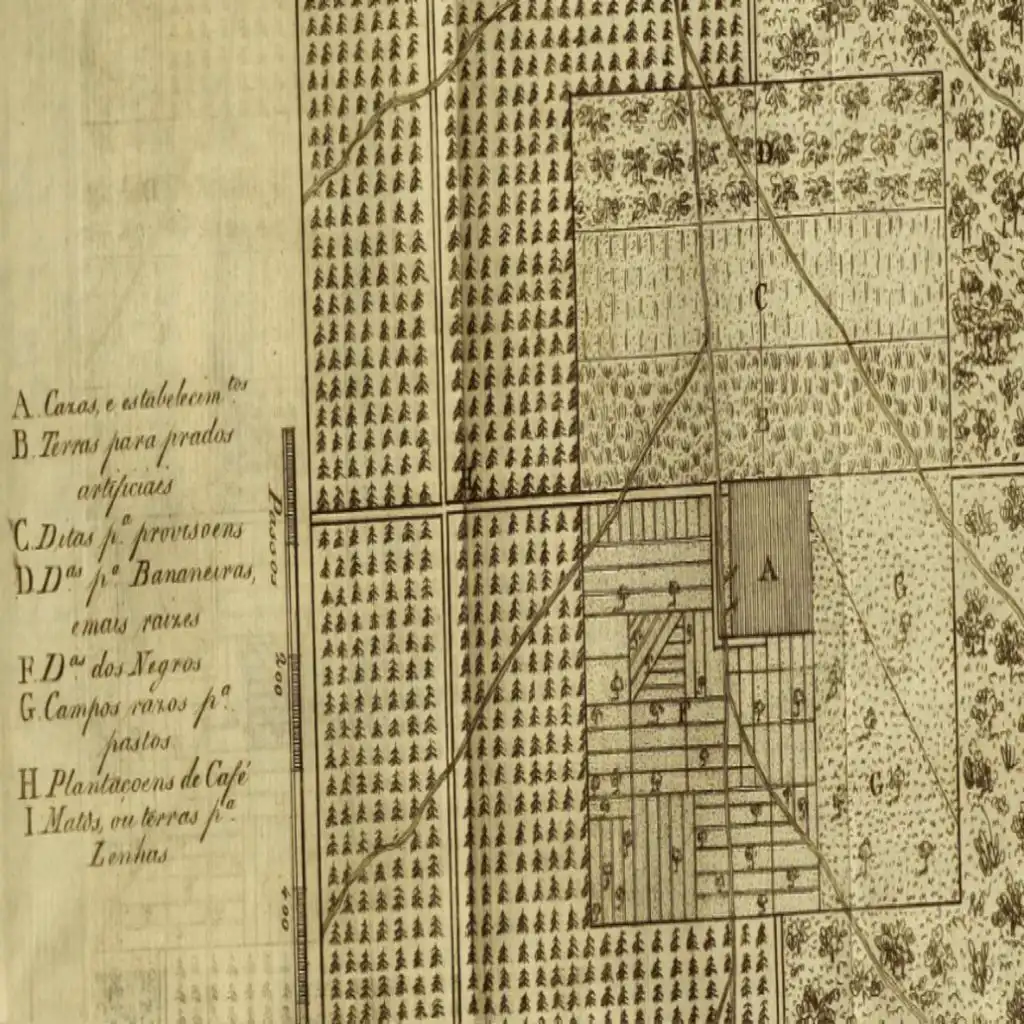 A. Cazas, e estabelecim.tos
B. Terras para prados
artificiaes
C. Ditas p.a provisoens
D. D.as p.a Bananeiras,
e mais raizes
F. D.as dos Negros
G. Campos razos p.a
pastos
H Plantaçoens de Café
I Matos, ou terras p.a
Lenhas
Passos
200
400
D
C
B
H
A
G
G